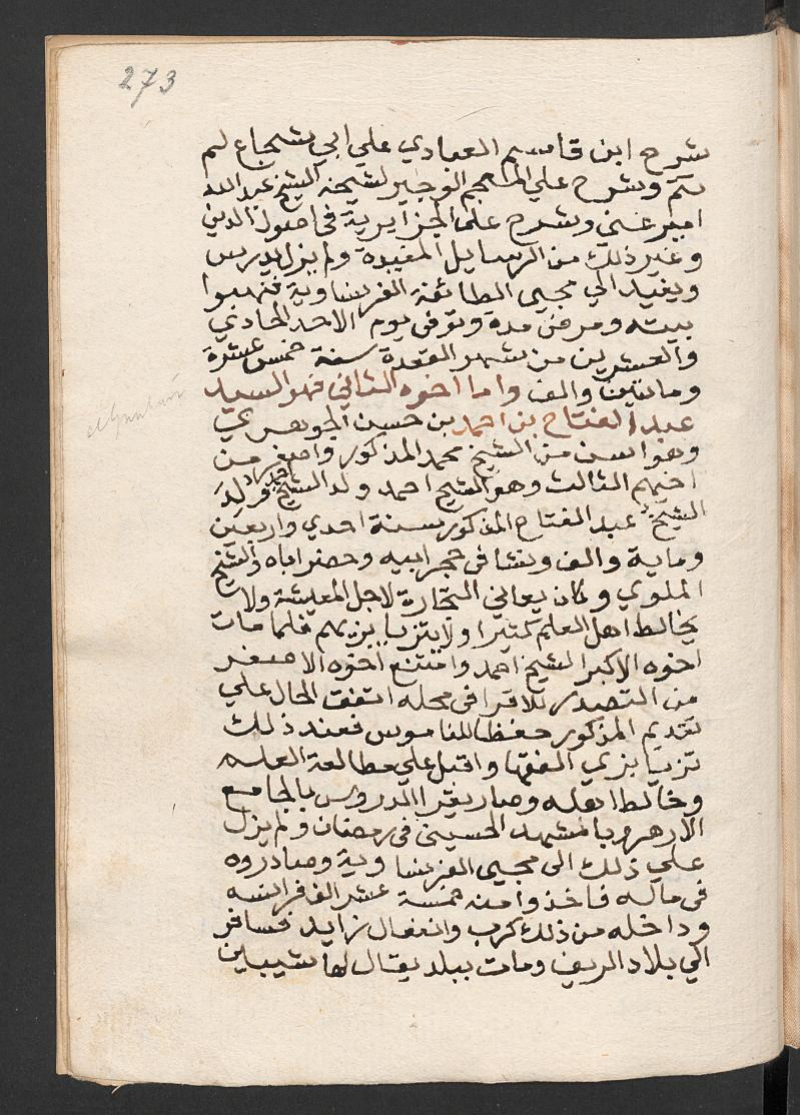 273
شرح ابن قاسم العبادي علي ابي شجاع لم
يتم وشرح علي المعجم الوجيز لشيخه الشيخ عبد الله
امير غني وشرح على الجزايرية فى اصول الدين
وغير ذلك من الرسايل المفيدة ولم يزل يدرس
ويفيد الي مجيى الطائفة الفرنساوية فنهبوا
بيته ومرض مدة وتوفى يوم الاحد الحادي
والعشرين من شهر القعدة سنة خمس عشرة
ومائتين والف واما اخوه الثاني فهو السيد
عبد الفتاح بن احمد بن حسن الجوهري
وهو اسن من الشيخ محمد المذكور واصغر من
اخيهم الثالث وهو الشيخ احمد ولد الشيخ
الشيخ عبد الفتاح المذكور سنة احدي واربعين
وماية والف ونشا فى حجر ابيه وحضر اباه والشيخ
الملوي وكان يعاني التجارة لاجل المعيشة ولا
يخالط اهل العلم كثيرا ولا يتزيا بزيهم فلما مات
اخوه الاكبر الشيخ احمد وامتنع اخوه الاصغر
من التصدر للاقرا فى محله اتفق الحال علي
تقديم المذكور حفظا للناموس فعند ذلك
تزيا بزي الفقها واقبل علي مطالعة العلم
وخالط اهله وصار يقرا الدروس بالجامع
الازهر وبالمشهد الحسينى فى رمضان ولم يزل
علي ذلك الى مجيى الفرنساوية وصادروه
فى ماله فاخذوا منه خمسة عشر الف فرانسه
وداخله من ذلك كرب وانفعال زايد فسافر
الي بلاد الريف ومات ببلد يقال لها شيباين